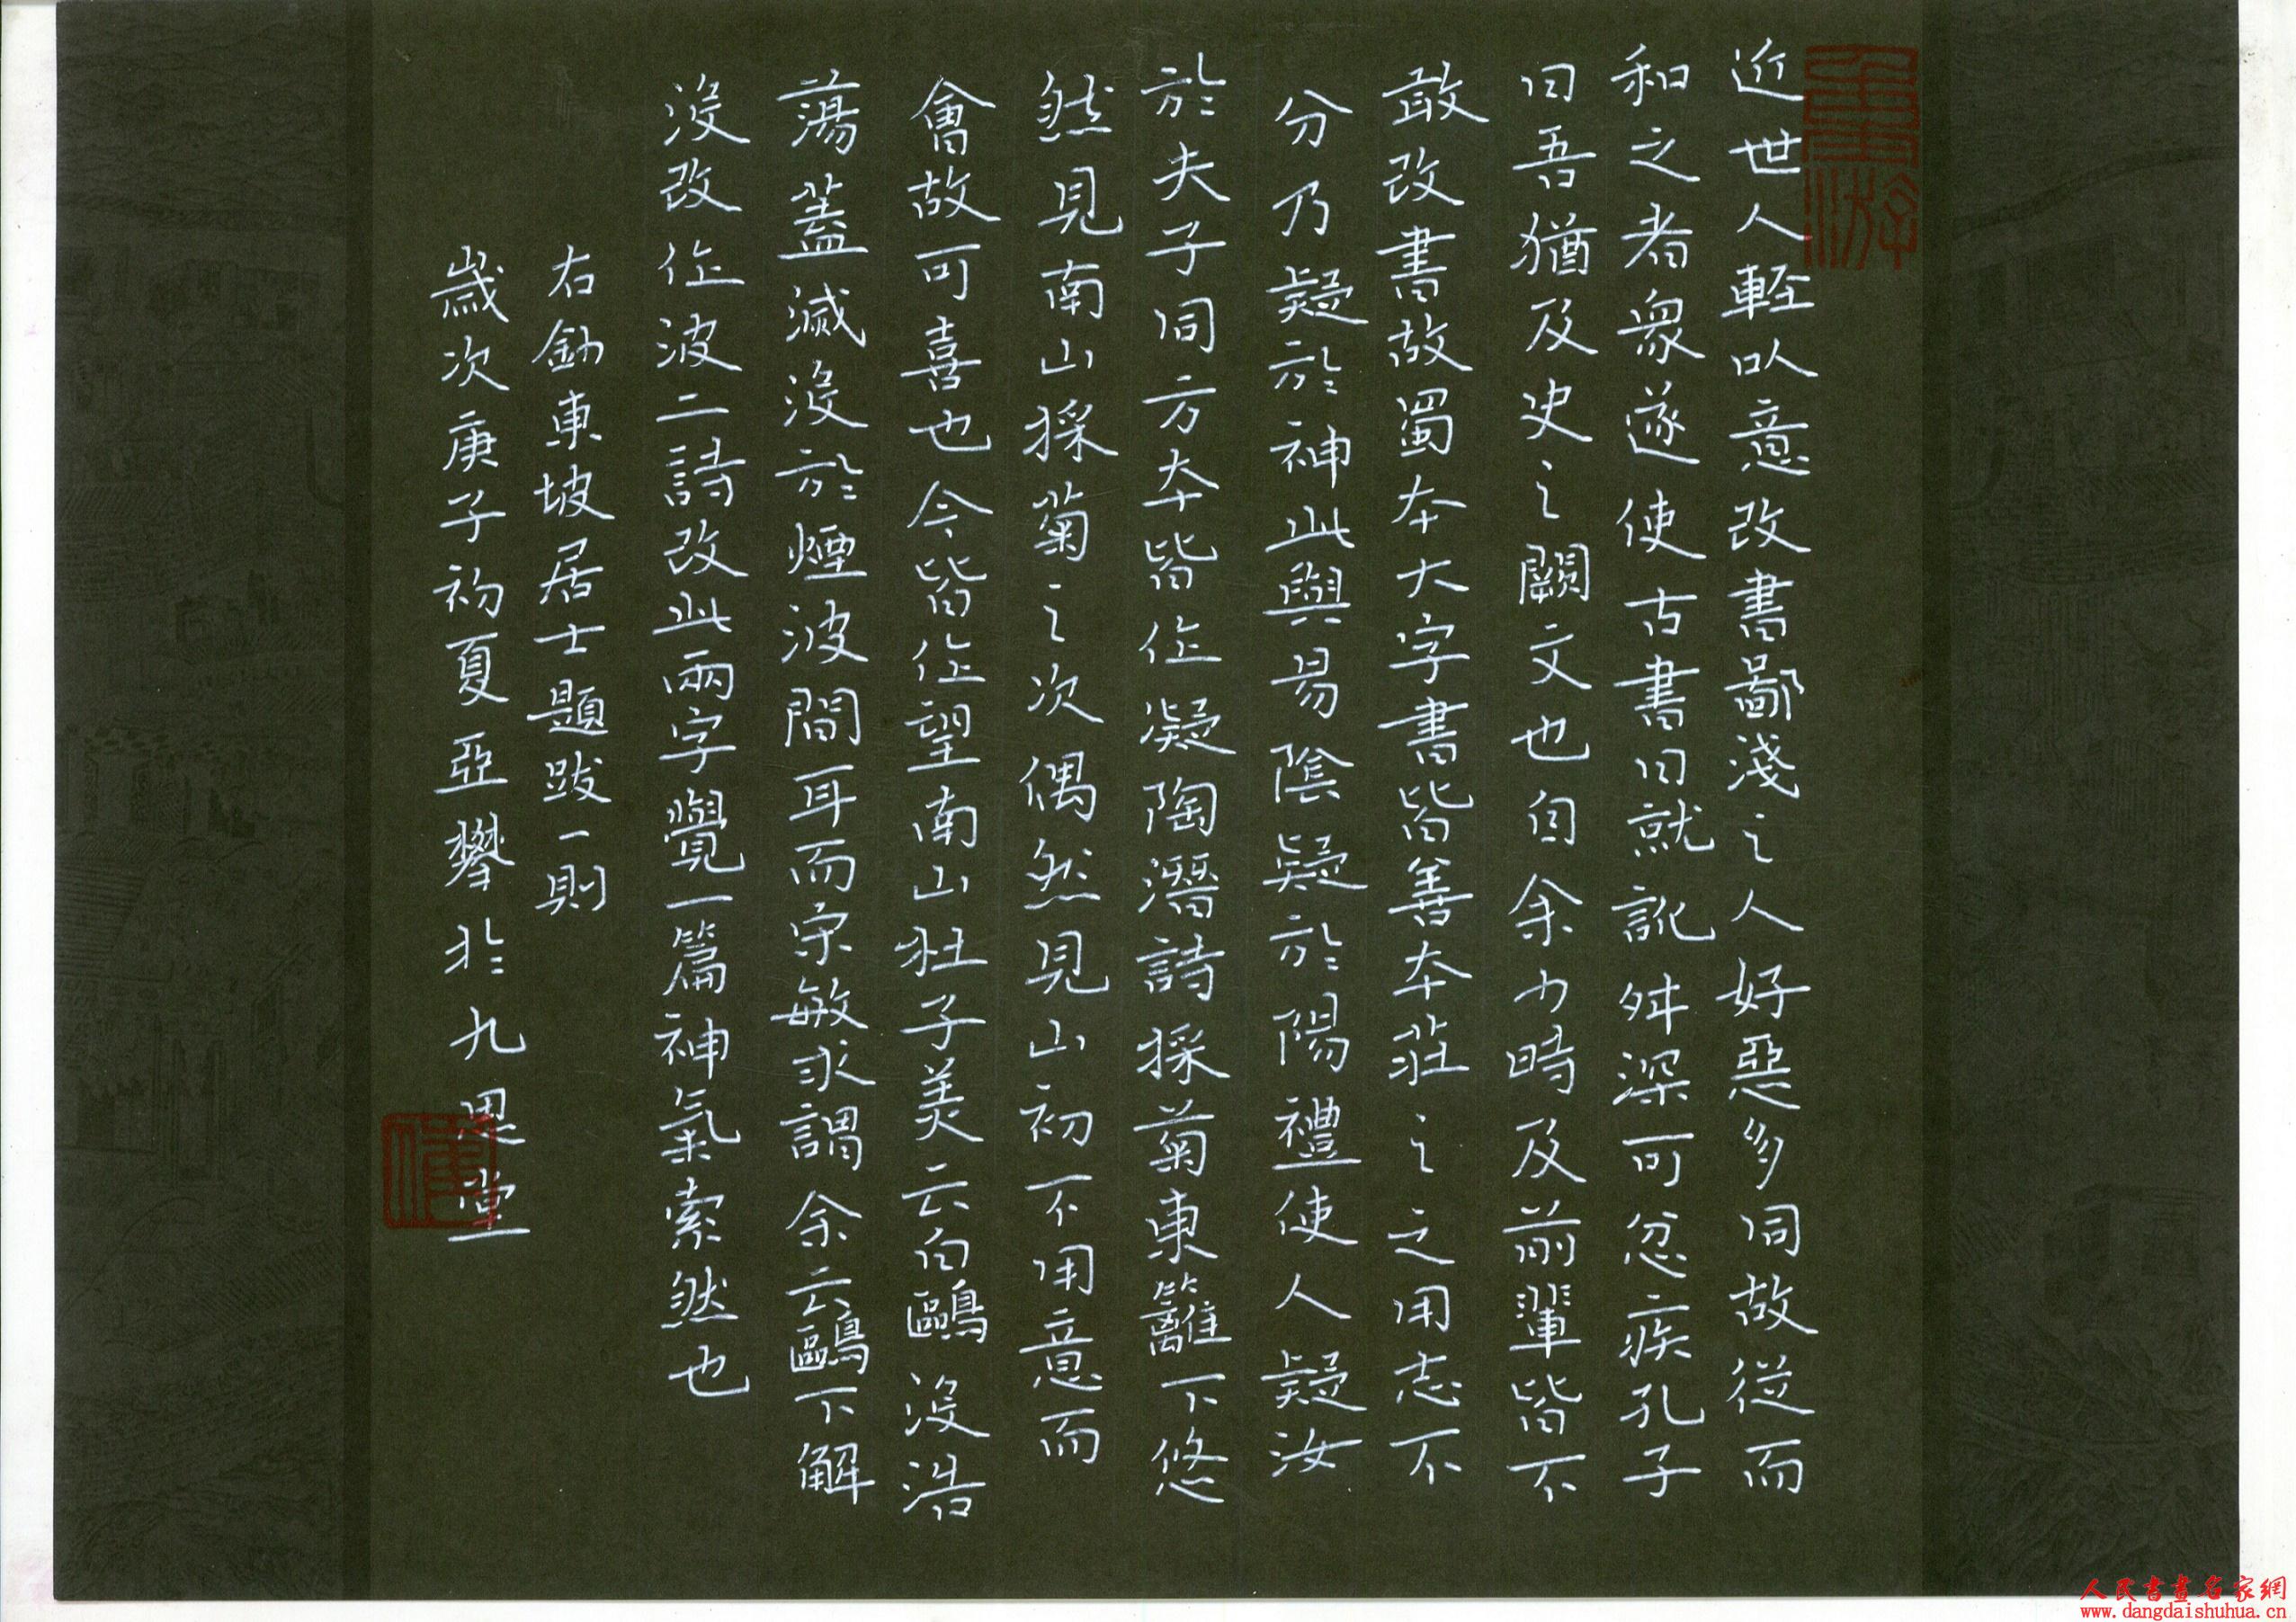 近世人輕以意改書鄙淺之人好惡多同故從而
和之者衆遂使古書日就訛舛深可忿疾孔子
曰吾猶及史之闕文也自余少時及前輩皆不
敢改書故蜀本大字書皆善本莊之之用志不
分乃疑於神此與易陰疑於陽禮使人疑汝
於夫子同方本皆作凝陶潛詩採菊東籬下悠
然見南山採菊之次偶然見山初不用意而
會故可喜也今皆作望南山杜子美云白鷗沒浩
蕩蓋滅沒於煙波間耳而宋敏求謂余云鷗不解
沒改作波二詩改此兩字覺一篇神氣索然也
右鈔東坡居士題跋一則
歲次庚子初夏亞攀於九思堂
人民書畫名家網
www.dangdaishuhua.cn